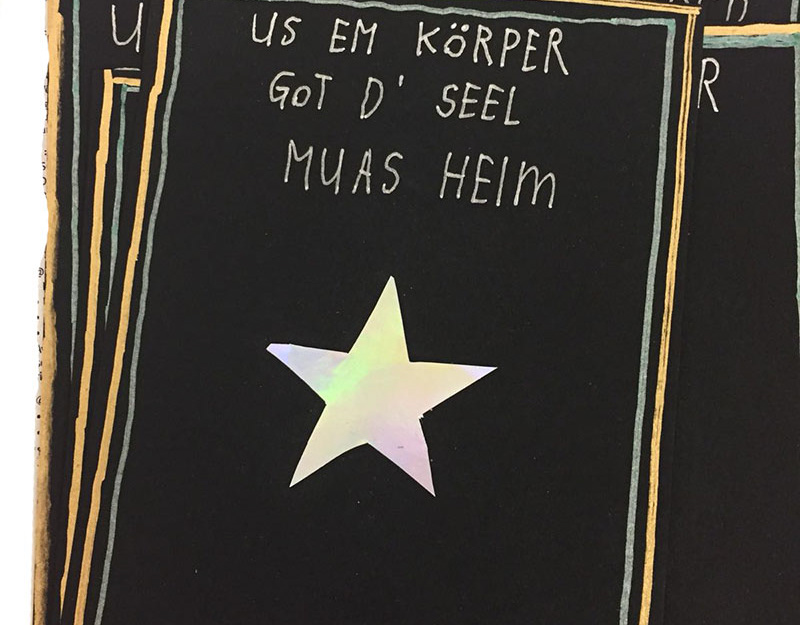 US EM KÖRPER
GOT D' SEEL
MUAS HEIM
U
R